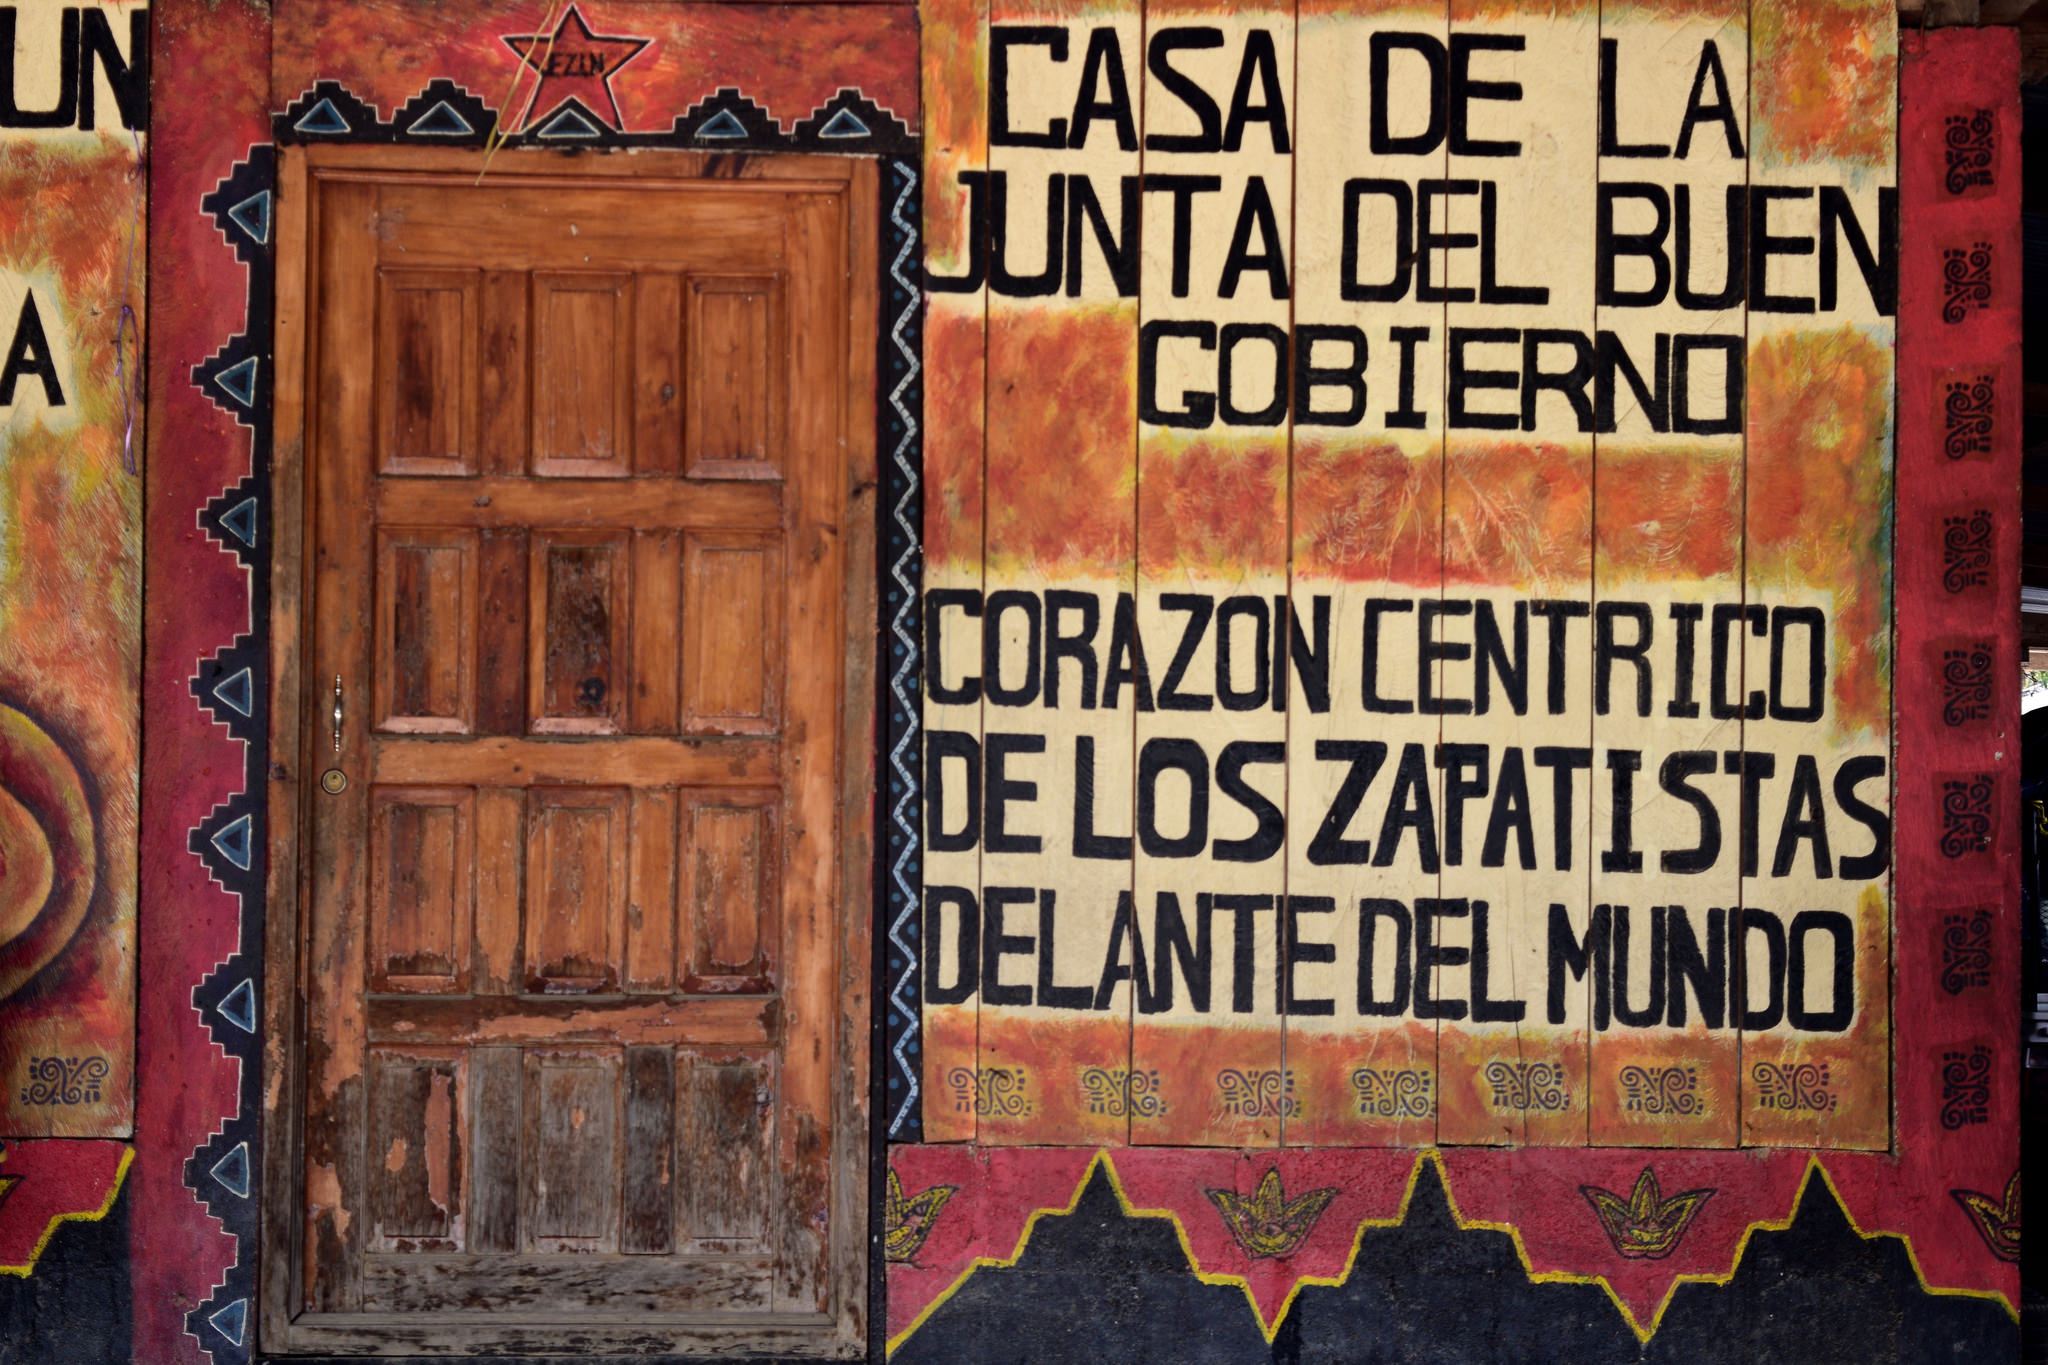 UN
A
EZLN
CASA DE LA
JUNTA DEL BUEN
GOBIERNO
CORAZON CENTRICO
DE LOS ZAPATISTAS
DELANTE DEL MUNDO